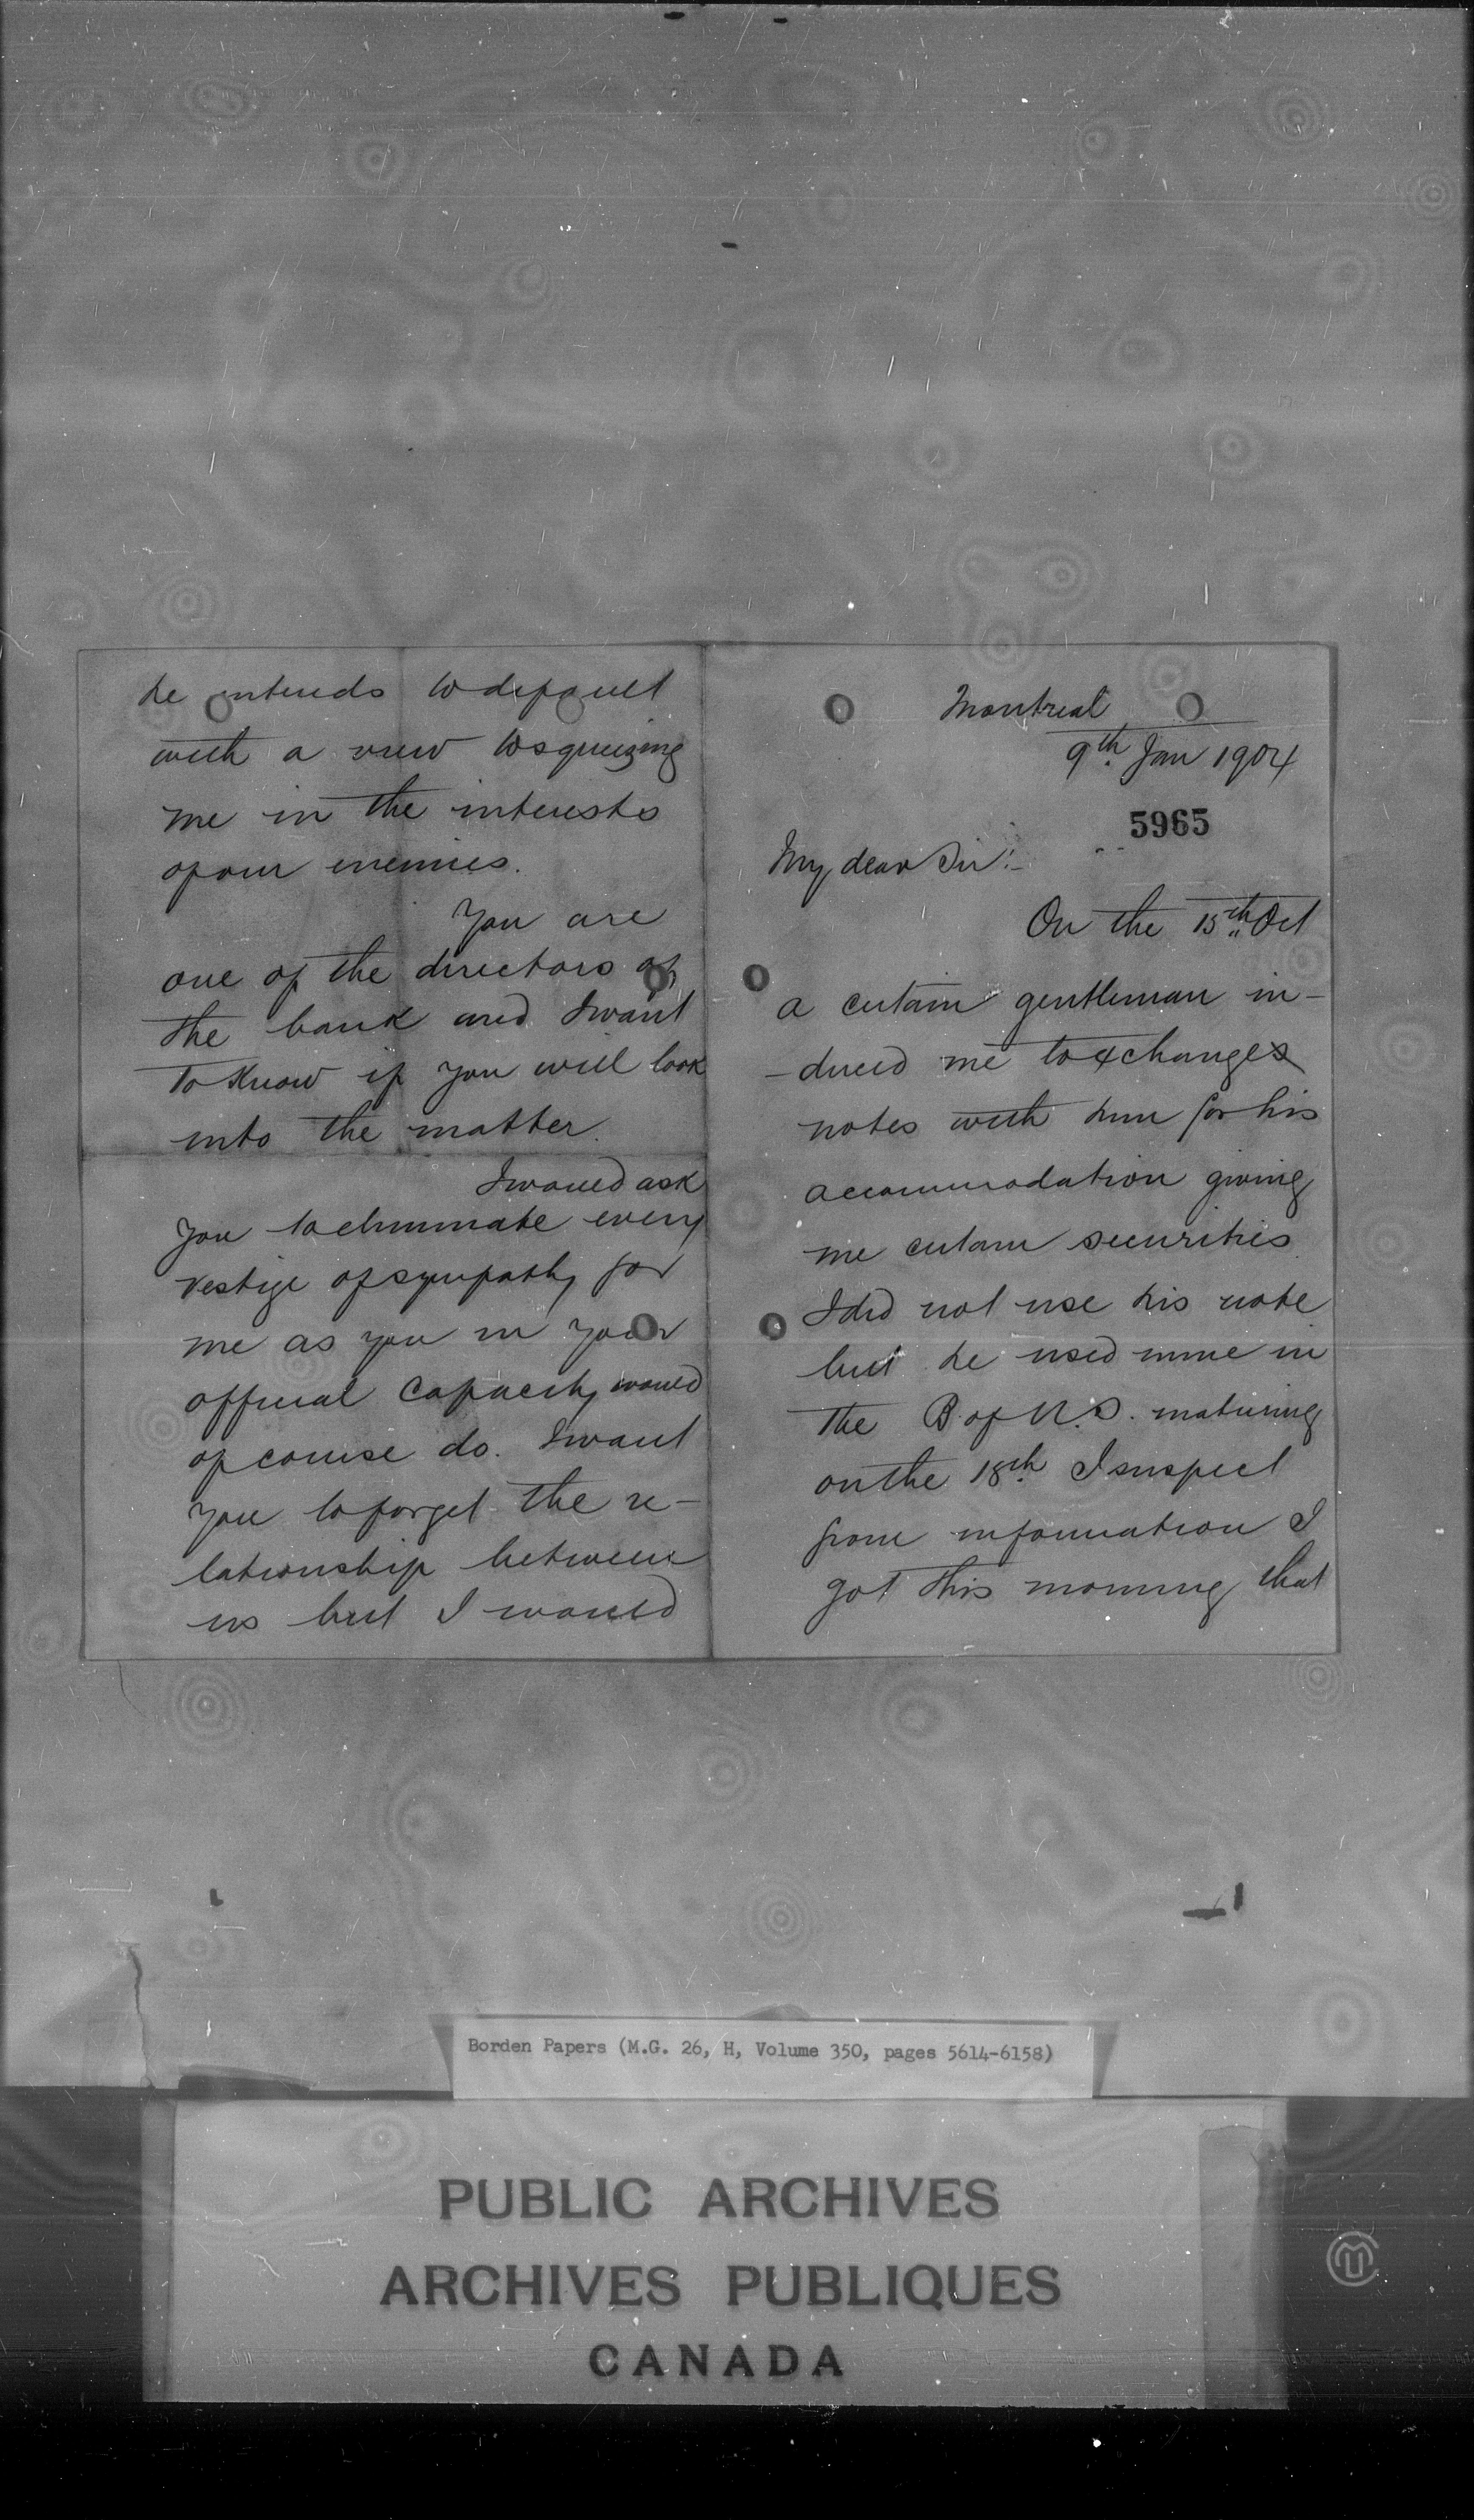 Montreal
9th Jan 1904
5965
My dear Sir:-
On the 15th Oct
a certain gentleman in-
-duced me to exchanges
notes with him for his
accommodation giving
me certain securities
I did not use his note
but he used mine in
the B of N.S. maturing
on the 18th I suspect
from information I
got this morning that
he intends to default
with a view to squeizing
me in the interests
of our enemies.
You are
one of the directors of
the bank and I want
to know if you will look
into the matter.
I would ask
you to eliminate every
vestige of sympathy for
me as you in your
official capacity would
of course do. I want
you to forget the re-
lationship between
us but I would
Borden Papers (M.G. 26, H, Volume 350, pages 5614-6158)
PUBLIC ARCHIVES
ARCHIVES PUBLIQUES
CANADA